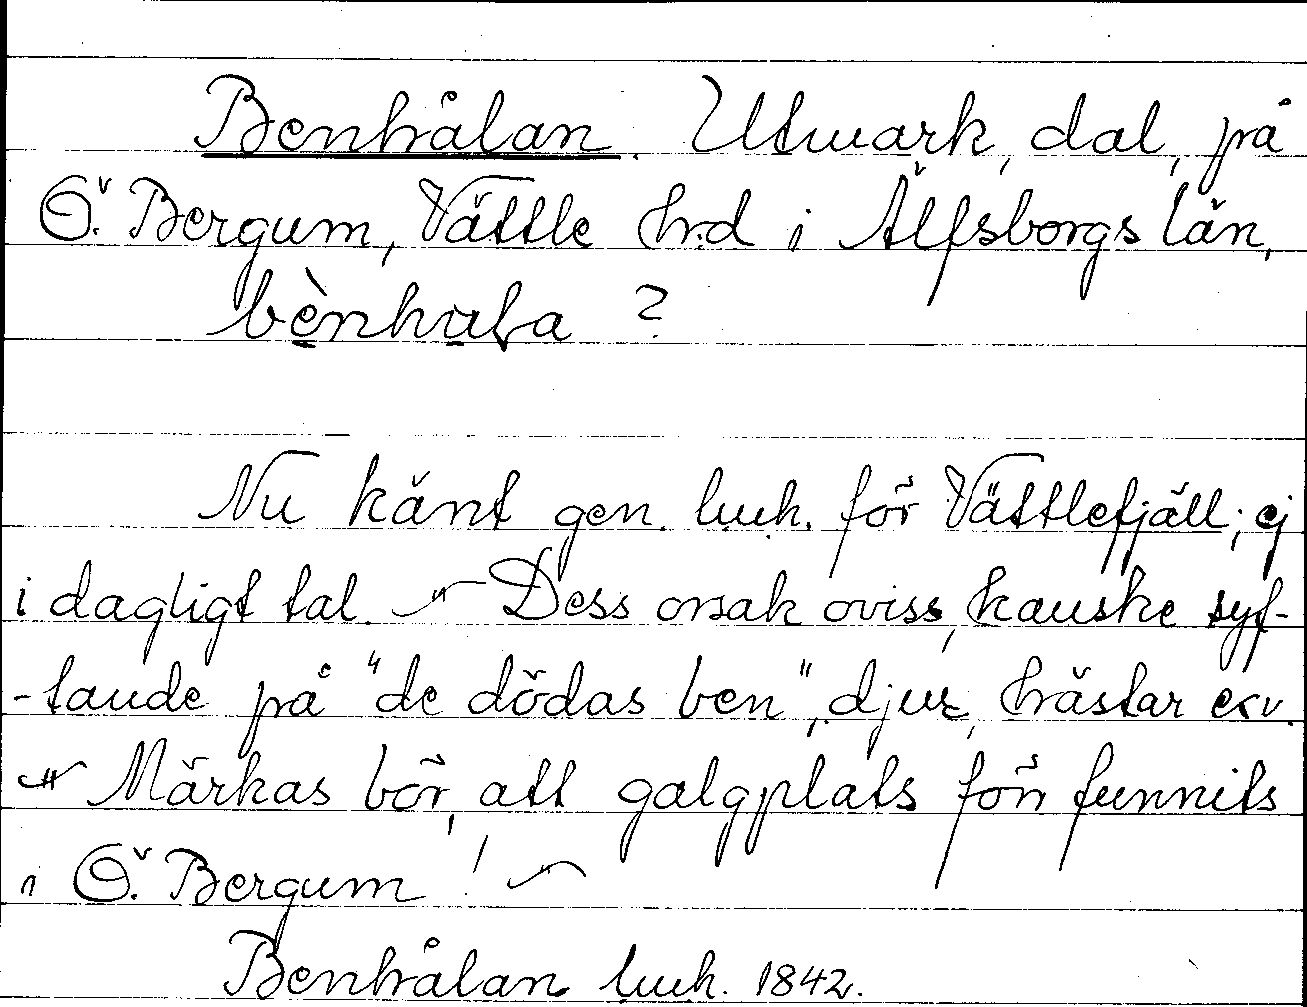 Benhålan. Utmark, dal, på
Ö. Bergum, Vättle hd i Älfsborgs län,
bènhula ?
Nu känt gen. lmh. för Vättlefjäll; ej
i dagligt tal. ~ Dess orsak oviss, kanske syf-
-tande på "de dödas ben", djur, hästar esv.
~ Märkas bör, att galgplats förr funnits
i Ö. Bergum ! ~
Benhålan lmh. 1842.